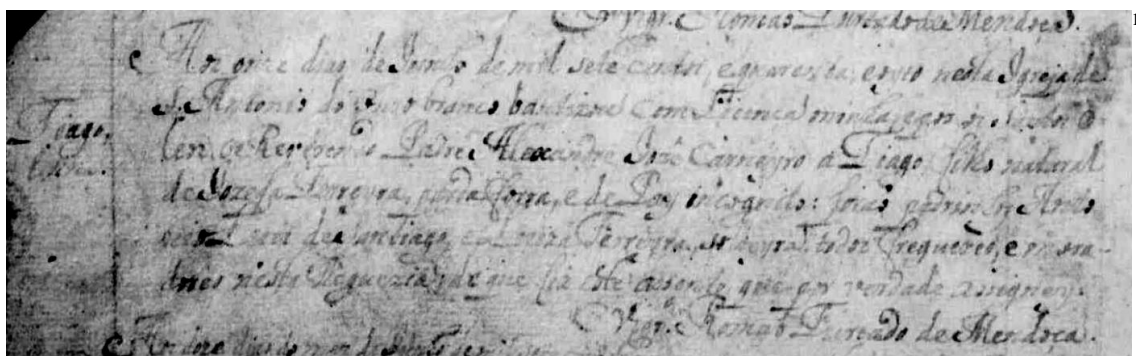 O Vigr.º Thomas Furtado de Mendoça.
Aos onze dias de Junho de mil sete centos, e quarenta, e oito nesta Igreja de
S. Antonio do Ouro branco bautizou com Licença minha, e pos os Santos O
leos o Reverendo Padre Alexandre Jozé Carneyro a Tiago filho natural
de Jozefa Ferreyra, preta forra, e de Pay incognito: forão padrinhos Anto
nio de Santiago, e Ferreyra, todos Freguezes, e mora-
dores nesta freguezia, de que fiz este assento, que por verdade assigney.
O Vigr.º Thomas Furtado de Mendoça.
Tiago,
Aos doze dias do mes de Junho de mil